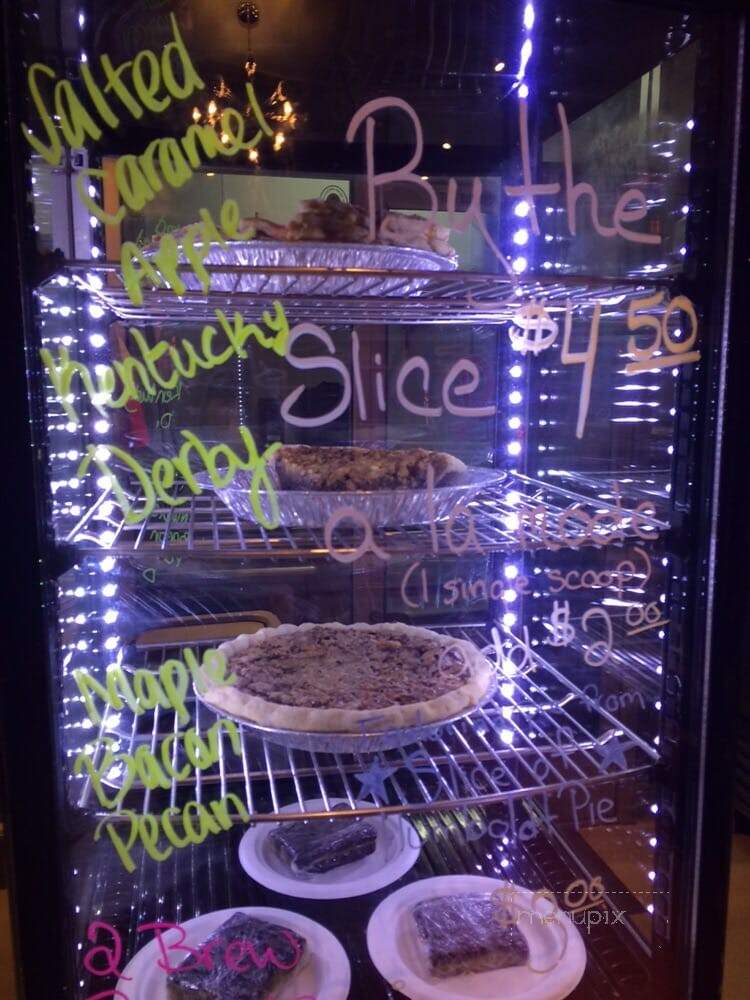 Salted
Caramel
Apple
Kentucky
Derby
Maple
Bacon
Pecan
2 Brew
By the
Slice $4 50
a la mode
(1 single scoop)
add $2 00
from
Slice of
Humboldt Pie
$3 00
menupix